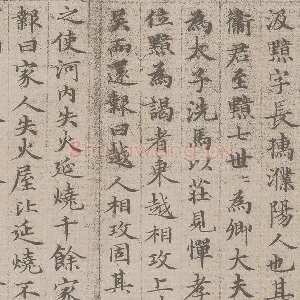 汲黯字長孺濮陽人也其
衛君至黯七世〻為卿大夫
為太子洗馬以莊見憚孝
位黯為謁者東越相攻上
吴而還報曰越人相攻固其
之使河内失火延燒千餘家
報曰家人失火屋比延燒不